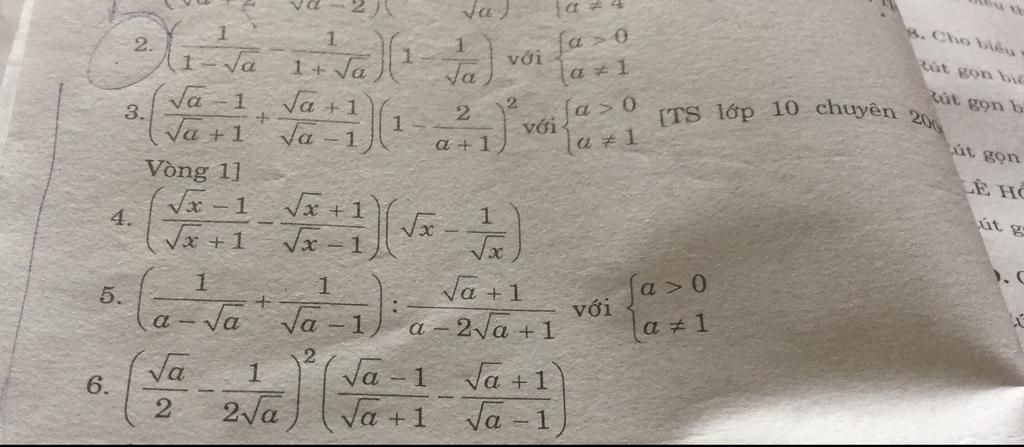 2. (1/(1 − √a) − 1/(1 + √a))(1 − 1/√a) với {a > 0; a ≠ 1
3. ((√a − 1)/(√a + 1) + (√a + 1)/(√a − 1))(1 − 2/(a + 1))² với {a > 0; a ≠ 1 [TS lớp 10 chuyên
Vòng 1]
4. ((√x − 1)/(√x + 1) − (√x + 1)/(√x − 1))(√x − 1/√x)
5. (1/(a − √a) + 1/(√a − 1)) : (√a + 1)/(a − 2√a + 1) với {a > 0; a ≠ 1
6. (√a/2 − 1/(2√a))²((√a − 1)/(√a + 1) − (√a + 1)/(√a − 1))
8. Cho biểu
Rút gọn
Rút gọn
Rút gọn